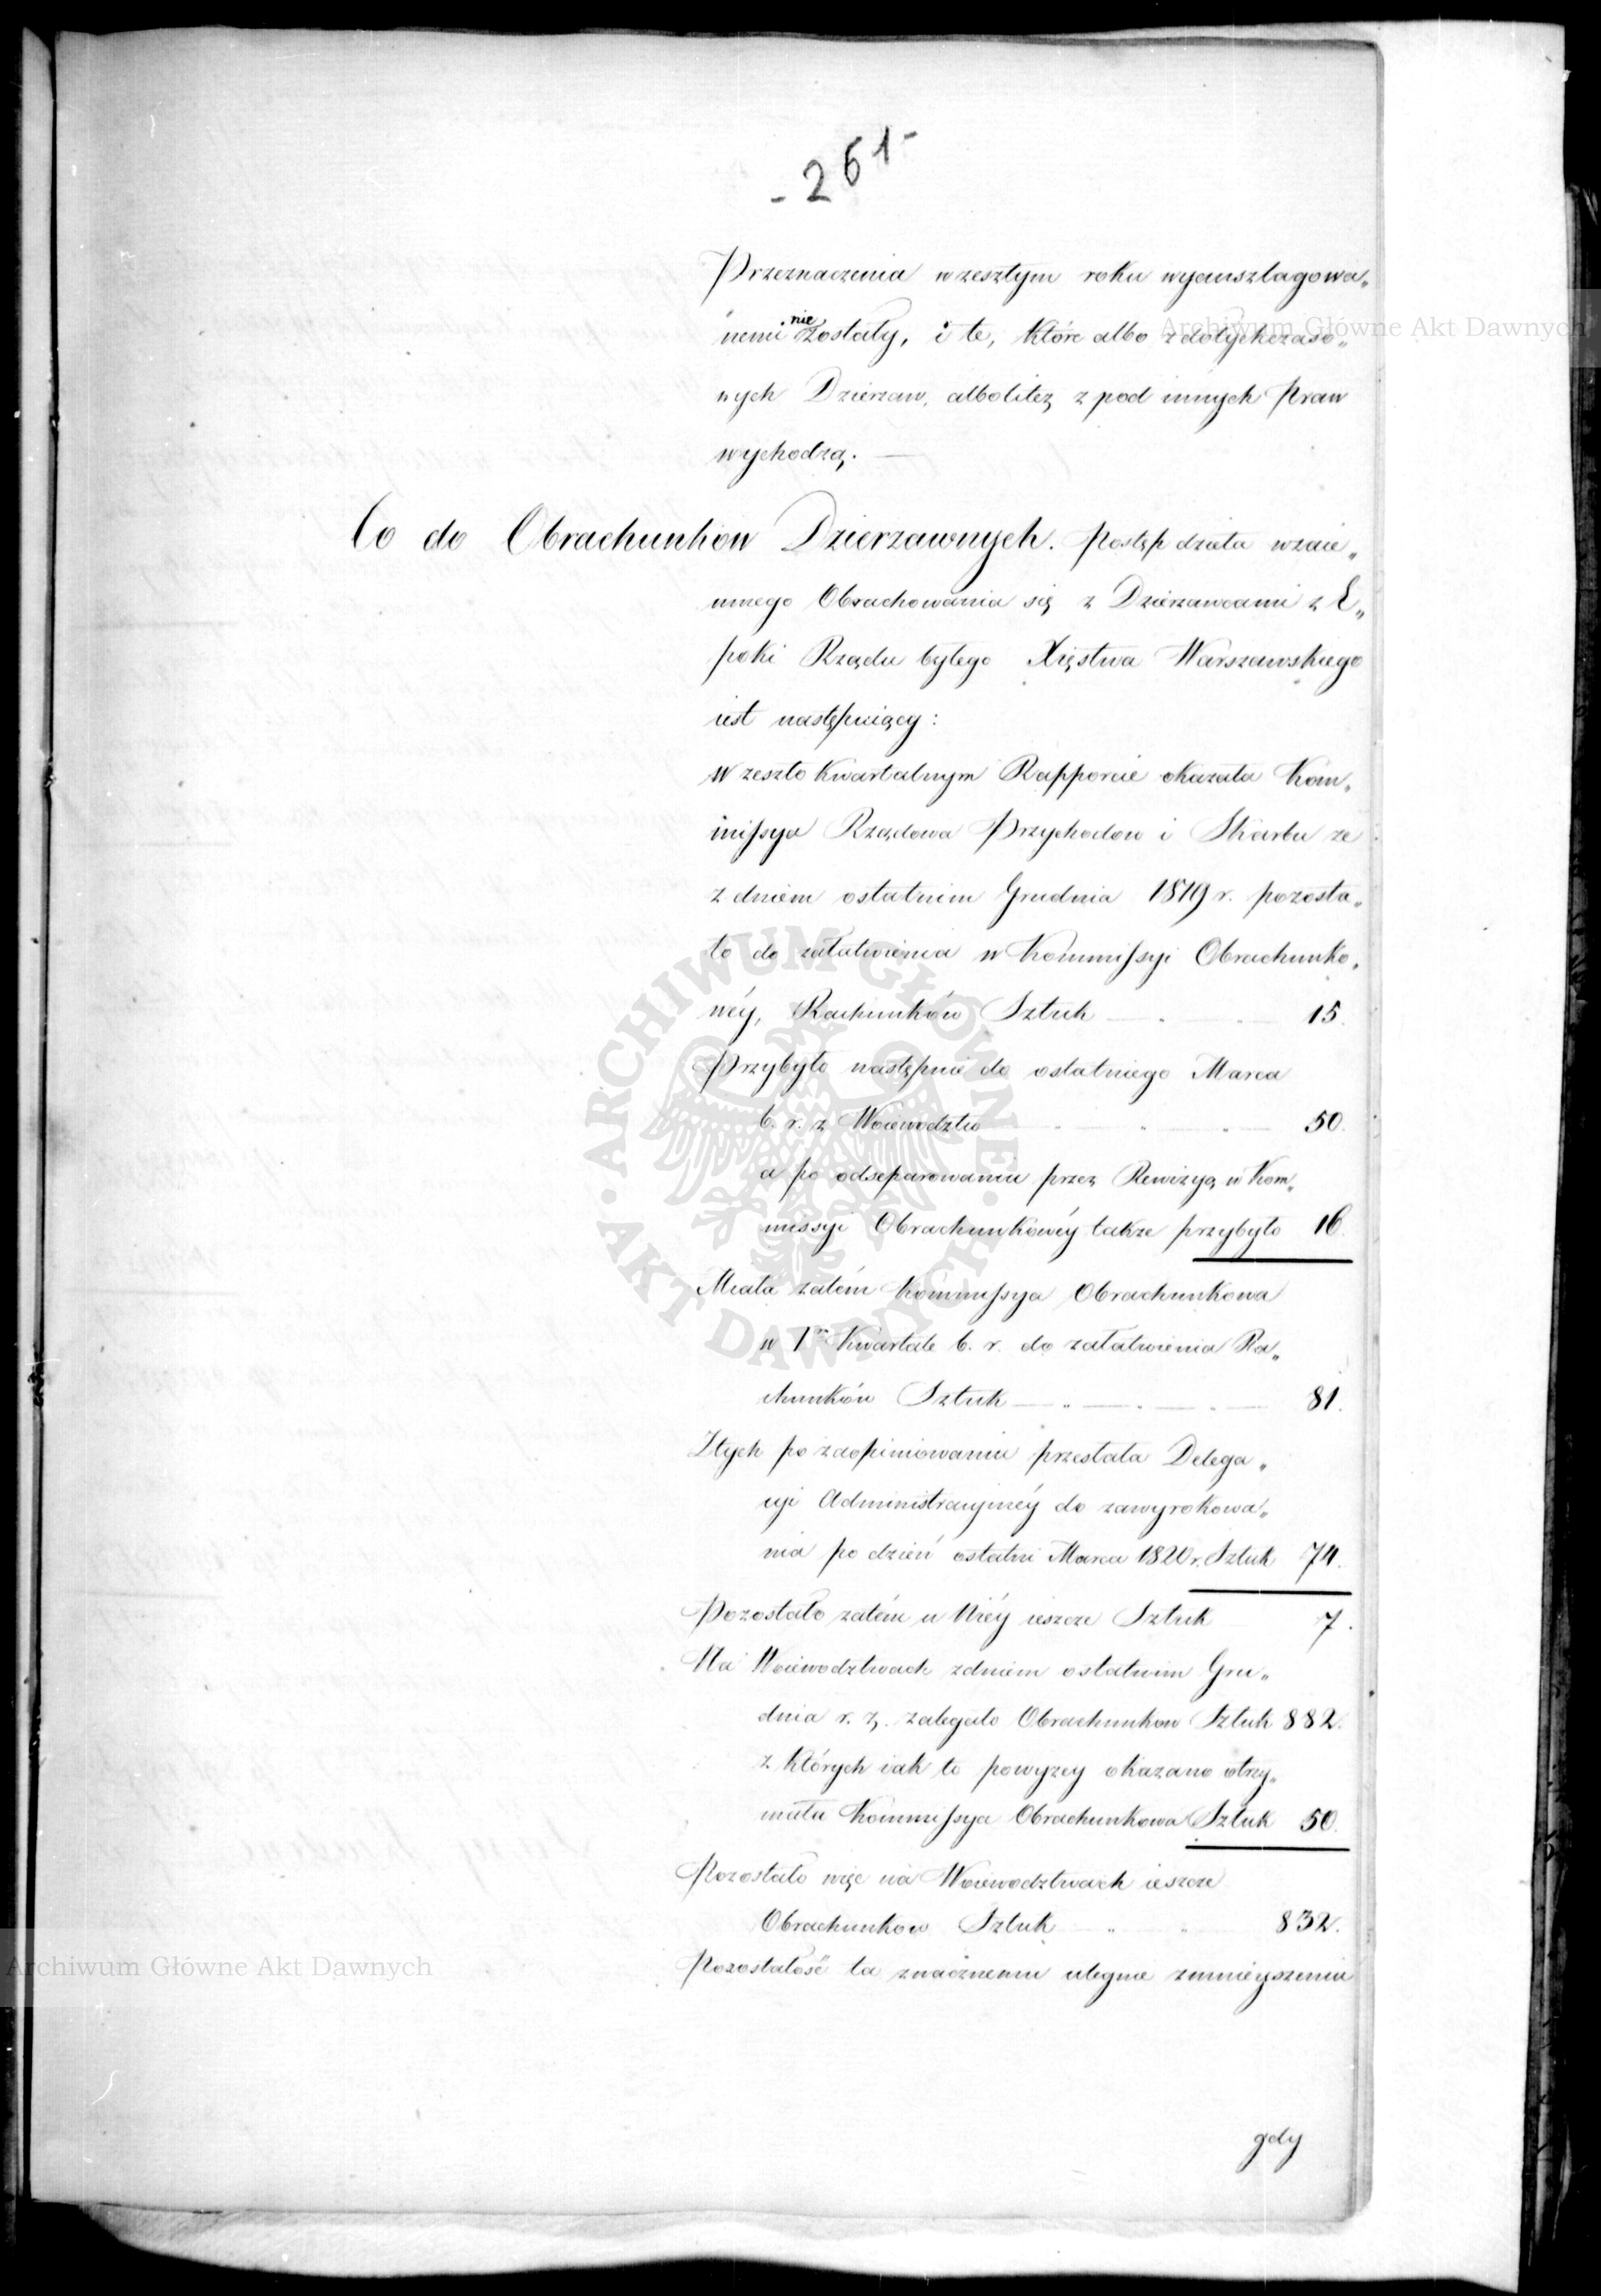 - 261 -
Przeznaczenia w zeszłym roku wyauszlagowa„
nemi nie zostały, i te, które albo z dotychczaso„
wych Dzierzaw, albo litéż z pod innych Praw
wychodzą. —
Co do Obrachunków Dzierzawnych. Postęp dzieła wzaie„
mnego Obrachowania się z Dzierzawcami z E„
poki Rządu byłego Xięstwa Warszawskiego
iest następuiący:
W zeszło kwartalnym Rapporcie okazała Kom„
missya Rządowa Przychodow i Skarbu ze
z dniem ostatnim Grudnia 1819 r. pozosta„
ło do załatwienia w Kommissyi Obrachunko„
wéy, Rachunków Sztuk — 15.
Przybyło następnie do ostatniego Marca
b. r. z Woiewodztw — 50.
a po odseparowaniu przez Rewizyą w Kom„
missyi Obrachunkowéy także przybyło 16.
Miała zatém Kommissya Obrachunkowa
w 1m Kwartale b. r. do załatwienia Ra„
chunków Sztuk — 81.
Z tych po zaopiniowaniu przesłała Delega„
cyi Administracyinéy do zawyrokowa„
nia po dzień ostatni Marca 1820 r. Sztuk 74.
Pozostało zatém w Niéy ieszcze Sztuk 7.
Na Woiewodztwach z dniem ostatnim Gru„
dnia r. z. zalegało Obrachunkow Sztuk 882.
z których iak to powyzey okazano otrzy„
mała Kommissya Obrachunkowa Sztuk 50.
Pozostało więc na Woiewodztwach ieszcze
Obrachunkow Sztuk 832.
Pozostałość ta znacznemu ulegnie zmnieyszeniu
gdy
Archiwum Główne Akt Dawnych
Archiwum Główne Akt Dawnych
ARCHIWUM GŁÓWNE AKT DAWNYCH